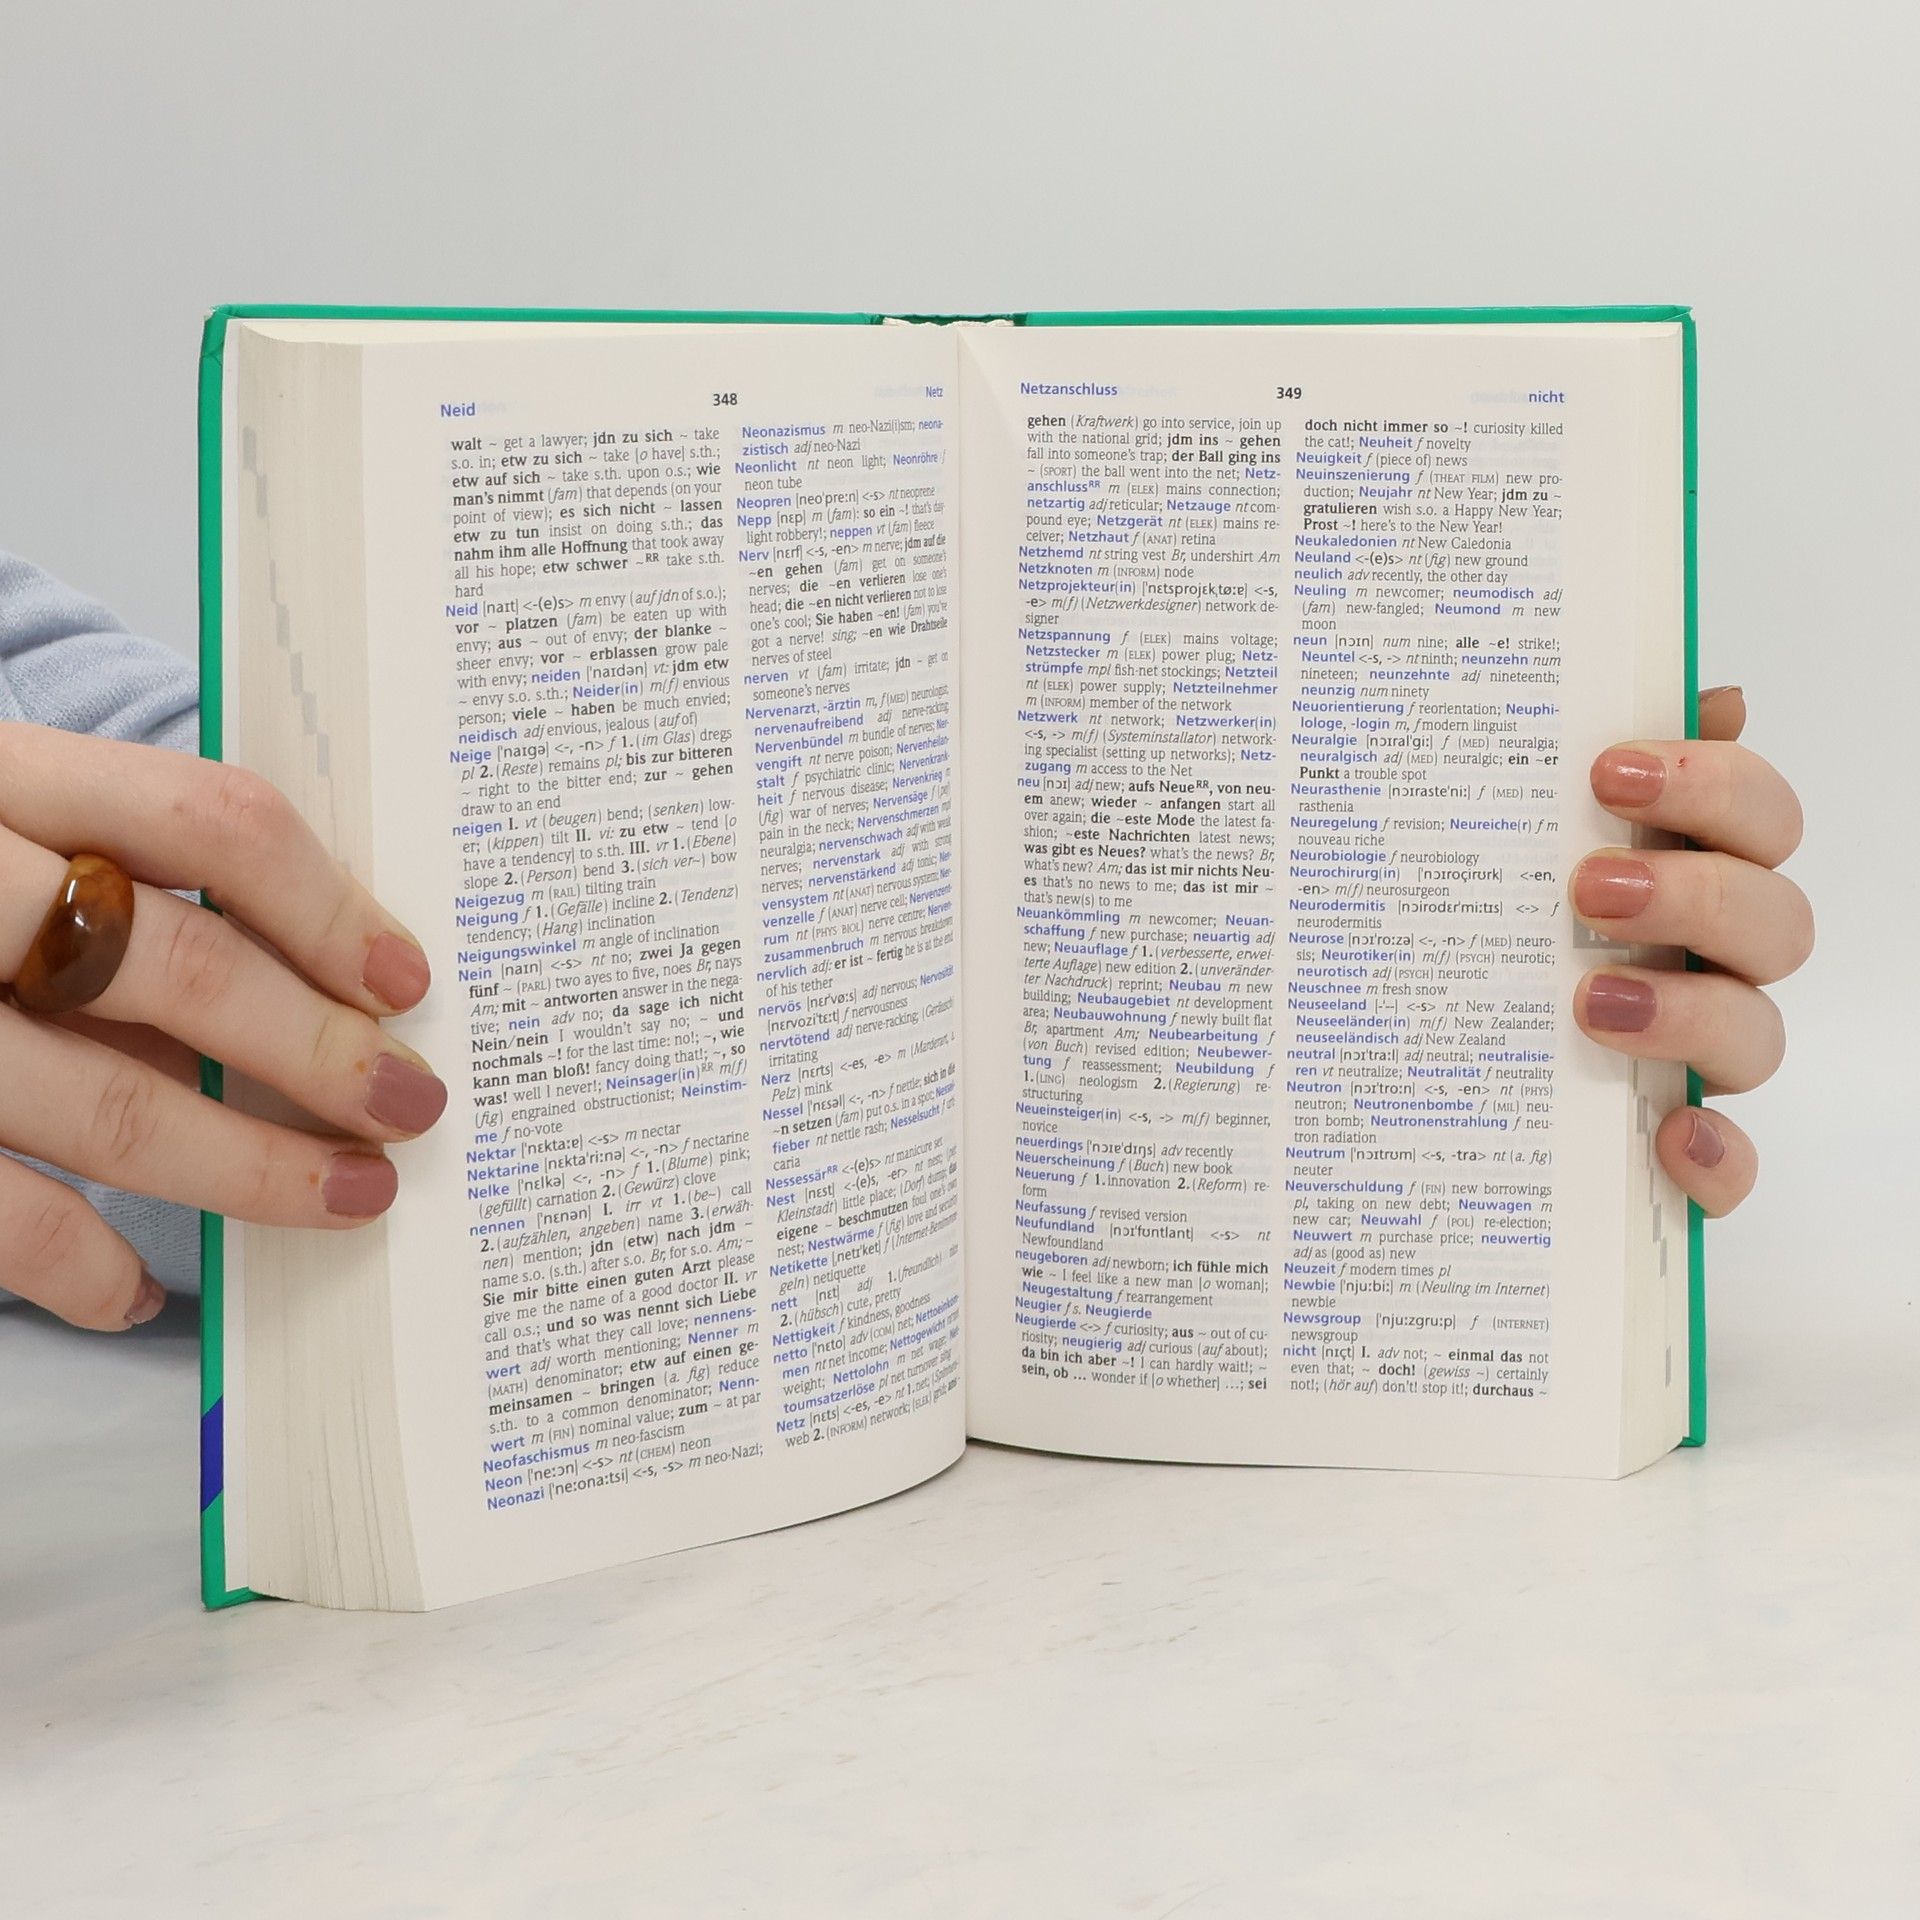 Neid 348 Netz
walt ~ get a lawyer; jdn zu sich ~ take
s.o. in; etw zu sich ~ take [o have] s.th.;
etw auf sich ~ take s.th. upon o.s.; wie
man's nimmt (fam) that depends (on your
point of view); es sich nicht ~ lassen
etw zu tun insist on doing s.th.; das
nahm ihm alle Hoffnung that took away
all his hope; etw schwer ~RR take s.th.
hard
Neid [naɪt] <-(e)s> m envy (auf jdn of s.o.);
vor ~ platzen (fam) be eaten up with
envy; aus ~ out of envy; der blanke ~
sheer envy; vor ~ erblassen grow pale
with envy; neiden ['naɪdən] vt: jdm etw
~ envy s.o. s.th.; Neider(in) m(f) envious
person; viele ~ haben be much envied;
neidisch adj envious, jealous (auf of)
Neige ['naɪgə] <-, -n> f 1. (im Glas) dregs
pl 2. (Reste) remains pl; bis zur bitteren
~ right to the bitter end; zur ~ gehen
draw to an end
neigen I. vt (beugen) bend; (senken) low-
er; (kippen) tilt II. vi: zu etw ~ tend [o
have a tendency] to s.th. III. vr 1. (Ebene)
slope 2. (Person) bend 3. (sich ver~) bow
Neigezug m (RAIL) tilting train
Neigung f 1. (Gefälle) incline 2. (Tendenz)
tendency; (Hang) inclination
Neigungswinkel m angle of inclination
Nein [naɪn] <-s> nt no; zwei Ja gegen
fünf ~ (PARL) two ayes to five, noes Br, nays
Am; mit ~ antworten answer in the nega-
tive; nein adv no; da sage ich nicht
Nein/nein I wouldn't say no; ~ und
nochmals ~! for the last time: no!; ~, wie
kann man bloß! fancy doing that!; ~, so
was! well I never!; Neinsager(in)RR m(f)
(fig) engrained obstructionist; Neinstim-
me f no-vote
Nektar ['nɛkta:ɐ] <-s> m nectar
Nektarine [nɛkta'ri:nə] <-, -n> f nectarine
Nelke ['nɛlkə] <-, -n> f 1. (Blume) pink;
(gefüllt) carnation 2. (Gewürz) clove
nennen ['nɛnən] I. irr vt 1. (be~) call
2. (aufzählen, angeben) name 3. (erwäh-
nen) mention; jdn (etw) nach jdm ~
name s.o. (s.th.) after s.o. Br, for s.o. Am; ~
Sie mir bitte einen guten Arzt please
give me the name of a good doctor II. vr
call o.s.; und so was nennt sich Liebe
and that's what they call love; nennens-
wert adj worth mentioning; Nenner m
(MATH) denominator; etw auf einen ge-
meinsamen ~ bringen (a. fig) reduce
s.th. to a common denominator; Nenn-
wert m (FIN) nominal value; zum ~ at par
Neofaschismus m neo-fascism
Neon ['ne:ɔn] <-s> nt (CHEM) neon
Neonazi ['ne:ona:tsi] <-s, -s> m neo-Nazi;
Neonazismus m neo-Nazi(i)sm; neona-
zistisch adj neo-Nazi
Neonlicht nt neon light; Neonröhre f
neon tube
Neopren [neo'pre:n] <-s> nt neoprene
Nepp [nɛp] m (fam): so ein ~! that's day-
light robbery!; neppen vt (fam) fleece
Nerv [nɛrf] <-s, -en> m nerve; jdm auf die
~en gehen (fam) get on someone's
nerves; die ~en verlieren lose one's
head; die ~en nicht verlieren not to lose
one's cool; Sie haben ~en! (fam) you've
got a nerve! sing; ~en wie Drahtseile
nerves of steel
nerven vt (fam) irritate; jdn ~ get on
someone's nerves
Nervenarzt, -ärztin m, f (MED) neurologist;
nervenaufreibend adj nerve-racking;
Nervenbündel m bundle of nerves; Ner-
vengift nt nerve poison; Nervenheilan-
stalt f psychiatric clinic; Nervenkrank-
heit f nervous disease; Nervenkrieg m
(fig) war of nerves; Nervensäge f (pej)
pain in the neck; Nervenschmerzen mpl
neuralgia; nervenschwach adj with weak
nerves; nervenstark adj with strong
nerves; nervenstärkend adj tonic; Ner-
vensystem nt (ANAT) nervous system; Ner-
venzelle f (ANAT) nerve cell; Nervenzent-
rum nt (PHYS BIOL) nerve centre; Nerven-
zusammenbruch m nervous breakdown
nervlich adj: er ist ~ fertig he is at the end
of his tether
nervös [nɛr'vø:s] adj nervous; Nervosität
[nɛrvozi'tɛ:t] f nervousness
nervtötend adj nerve-racking; (Geräusch)
irritating
Nerz [nɛrts] <-es, -e> m (Marderart, a.
Pelz) mink
Nessel ['nɛsəl] <-, -n> f nettle; sich in die
~n setzen (fam) put o.s. in a spot; Nessel-
fieber nt nettle rash; Nesselsucht f urti-
caria
NessessärRR <-(e)s> nt manicure set
Nest [nɛst] <-(e)s, -er> nt nest;
Kleinstadt) little place; (Dorf) dump; das
eigene ~ beschmutzen foul one's own
nest; Nestwärme f (fig) love and security
Netikette [netɪ'ket] f (Internet-Benimm-
geln) netiquette
nett [nɛt] adj 1. (freundlich) nice
2. (hübsch) cute, pretty
Nettigkeit f kindness, goodness
netto ['nɛto] adv (COM) net; Nettoeinkom-
men nt net income; Nettogewicht nt net
weight; Nettolohn m net wage; Net-
toumsatzerlöse pl net turnover sing
Netz [nɛts] <-es, -e> nt 1. net;
web 2. (INFORM) network; (ELEK) grid; ans ~
Netzanschluss 349 nicht
gehen (Kraftwerk) go into service, join up
with the national grid; jdm ins ~ gehen
fall into someone's trap; der Ball ging ins
~ (SPORT) the ball went into the net; Netz-
anschlussRR m (ELEK) mains connection;
netzartig adj reticular; Netzauge nt com-
pound eye; Netzgerät nt (ELEK) mains re-
ceiver; Netzhaut f (ANAT) retina
Netzhemd nt string vest Br, undershirt Am
Netzknoten m (INFORM) node
Netzprojekteur(in) ['nɛtsprojɛkˌtø:ɐ] <-s,
-e> m(f) (Netzwerkdesigner) network de-
signer
Netzspannung f (ELEK) mains voltage;
Netzstecker m (ELEK) power plug; Netz-
strümpfe mpl fish-net stockings; Netzteil
nt (ELEK) power supply; Netzteilnehmer
m (INFORM) member of the network
Netzwerk nt network; Netzwerker(in)
<-s, -> m(f) (Systeminstallator) network-
ing specialist (setting up networks); Netz-
zugang m access to the Net
neu [nɔɪ] adj new; aufs NeueRR, von neu-
em anew; wieder ~ anfangen start all
over again; die ~este Mode the latest fa-
shion; ~este Nachrichten latest news;
was gibt es Neues? what's the news? Br,
what's new? Am; das ist mir nichts Neu-
es that's no news to me; das ist mir ~
that's new(s) to me
Neuankömmling m newcomer; Neuan-
schaffung f new purchase; neuartig adj
new; Neuauflage f 1. (verbesserte, erwei-
terte Auflage) new edition 2. (unveränder-
ter Nachdruck) reprint; Neubau m new
building; Neubaugebiet nt development
area; Neubauwohnung f newly built flat
Br, apartment Am; Neubearbeitung f
(von Buch) revised edition; Neubewer-
tung f reassessment; Neubildung f
1. (LING) neologism 2. (Regierung) re-
structuring
Neueinsteiger(in) <-s, -> m(f) beginner,
novice
neuerdings ['nɔɪɐ'dɪŋs] adv recently
Neuerscheinung f (Buch) new book
Neuerung f 1. innovation 2. (Reform) re-
form
Neufassung f revised version
Neufundland [nɔɪ'fʊntlant] <-s> nt
Newfoundland
neugeboren adj newborn; ich fühle mich
wie ~ I feel like a new man [o woman];
Neugestaltung f rearrangement
Neugier f s. Neugierde
Neugierde <-> f curiosity; aus ~ out of cu-
riosity; neugierig adj curious (auf about);
da bin ich aber ~! I can hardly wait!; ~
sein, ob ... wonder if [o whether] ...; sei
doch nicht immer so ~! curiosity killed
the cat!; Neuheit f novelty
Neuigkeit f (piece of) news
Neuinszenierung f (THEAT FILM) new pro-
duction; Neujahr nt New Year; jdm zu ~
gratulieren wish s.o. a Happy New Year;
Prost ~! here's to the New Year!
Neukaledonien nt New Caledonia
Neuland <-(e)s> nt (fig) new ground
neulich adv recently, the other day
Neuling m newcomer; neumodisch adj
(fam) new-fangled; Neumond m new
moon
neun [nɔɪn] num nine; alle ~e! strike!;
Neuntel <-s, -> nt ninth; neunzehn num
nineteen; neunzehnte adj nineteenth;
neunzig num ninety
Neuorientierung f reorientation; Neuphi-
lologe, -login m, f modern linguist
Neuralgie [nɔɪral'gi:] f (MED) neuralgia;
neuralgisch adj (MED) neuralgic; ein ~er
Punkt a trouble spot
Neurasthenie [nɔɪraste'ni:] f (MED) neu-
rasthenia
Neuregelung f revision; Neureiche(r) f m
nouveau riche
Neurobiologie f neurobiology
Neurochirurg(in) ['nɔɪroçirʊrk] <-en,
-en> m(f) neurosurgeon
Neurodermitis [nɔɪrodɛr'mi:tɪs] <-> f
neurodermitis
Neurose [nɔɪ'ro:zə] <-, -n> f (MED) neuro-
sis; Neurotiker(in) m(f) (PSYCH) neurotic;
neurotisch adj (PSYCH) neurotic
Neuschnee m fresh snow
Neuseeland [-'--] <-s> nt New Zealand;
Neuseeländer(in) m(f) New Zealander;
neuseeländisch adj New Zealand
neutral [nɔɪ'tra:l] adj neutral; neutralisie-
ren vt neutralize; Neutralität f neutrality
Neutron ['nɔɪtrɔ:n] <-s, -en> nt (PHYS)
neutron; Neutronenbombe f (MIL) neu-
tron bomb; Neutronenstrahlung f neu-
tron radiation
Neutrum ['nɔɪtrʊm] <-s, -tra> nt (a. fig)
neuter
Neuverschuldung f (FIN) new borrowings
pl, taking on new debt; Neuwagen m
new car; Neuwahl f (POL) re-election;
Neuwert m purchase price; neuwertig
adj as (good as) new
Neuzeit f modern times pl
Newbie ['nju:bi:] m (Neuling im Internet)
newbie
Newsgroup ['nju:zgru:p] f (INTERNET)
newsgroup
nicht [nɪçt] I. adv not; ~ einmal das not
even that; ~ doch! (gewiss ~) certainly
not!; (hör auf) don't! stop it!; durchaus ~